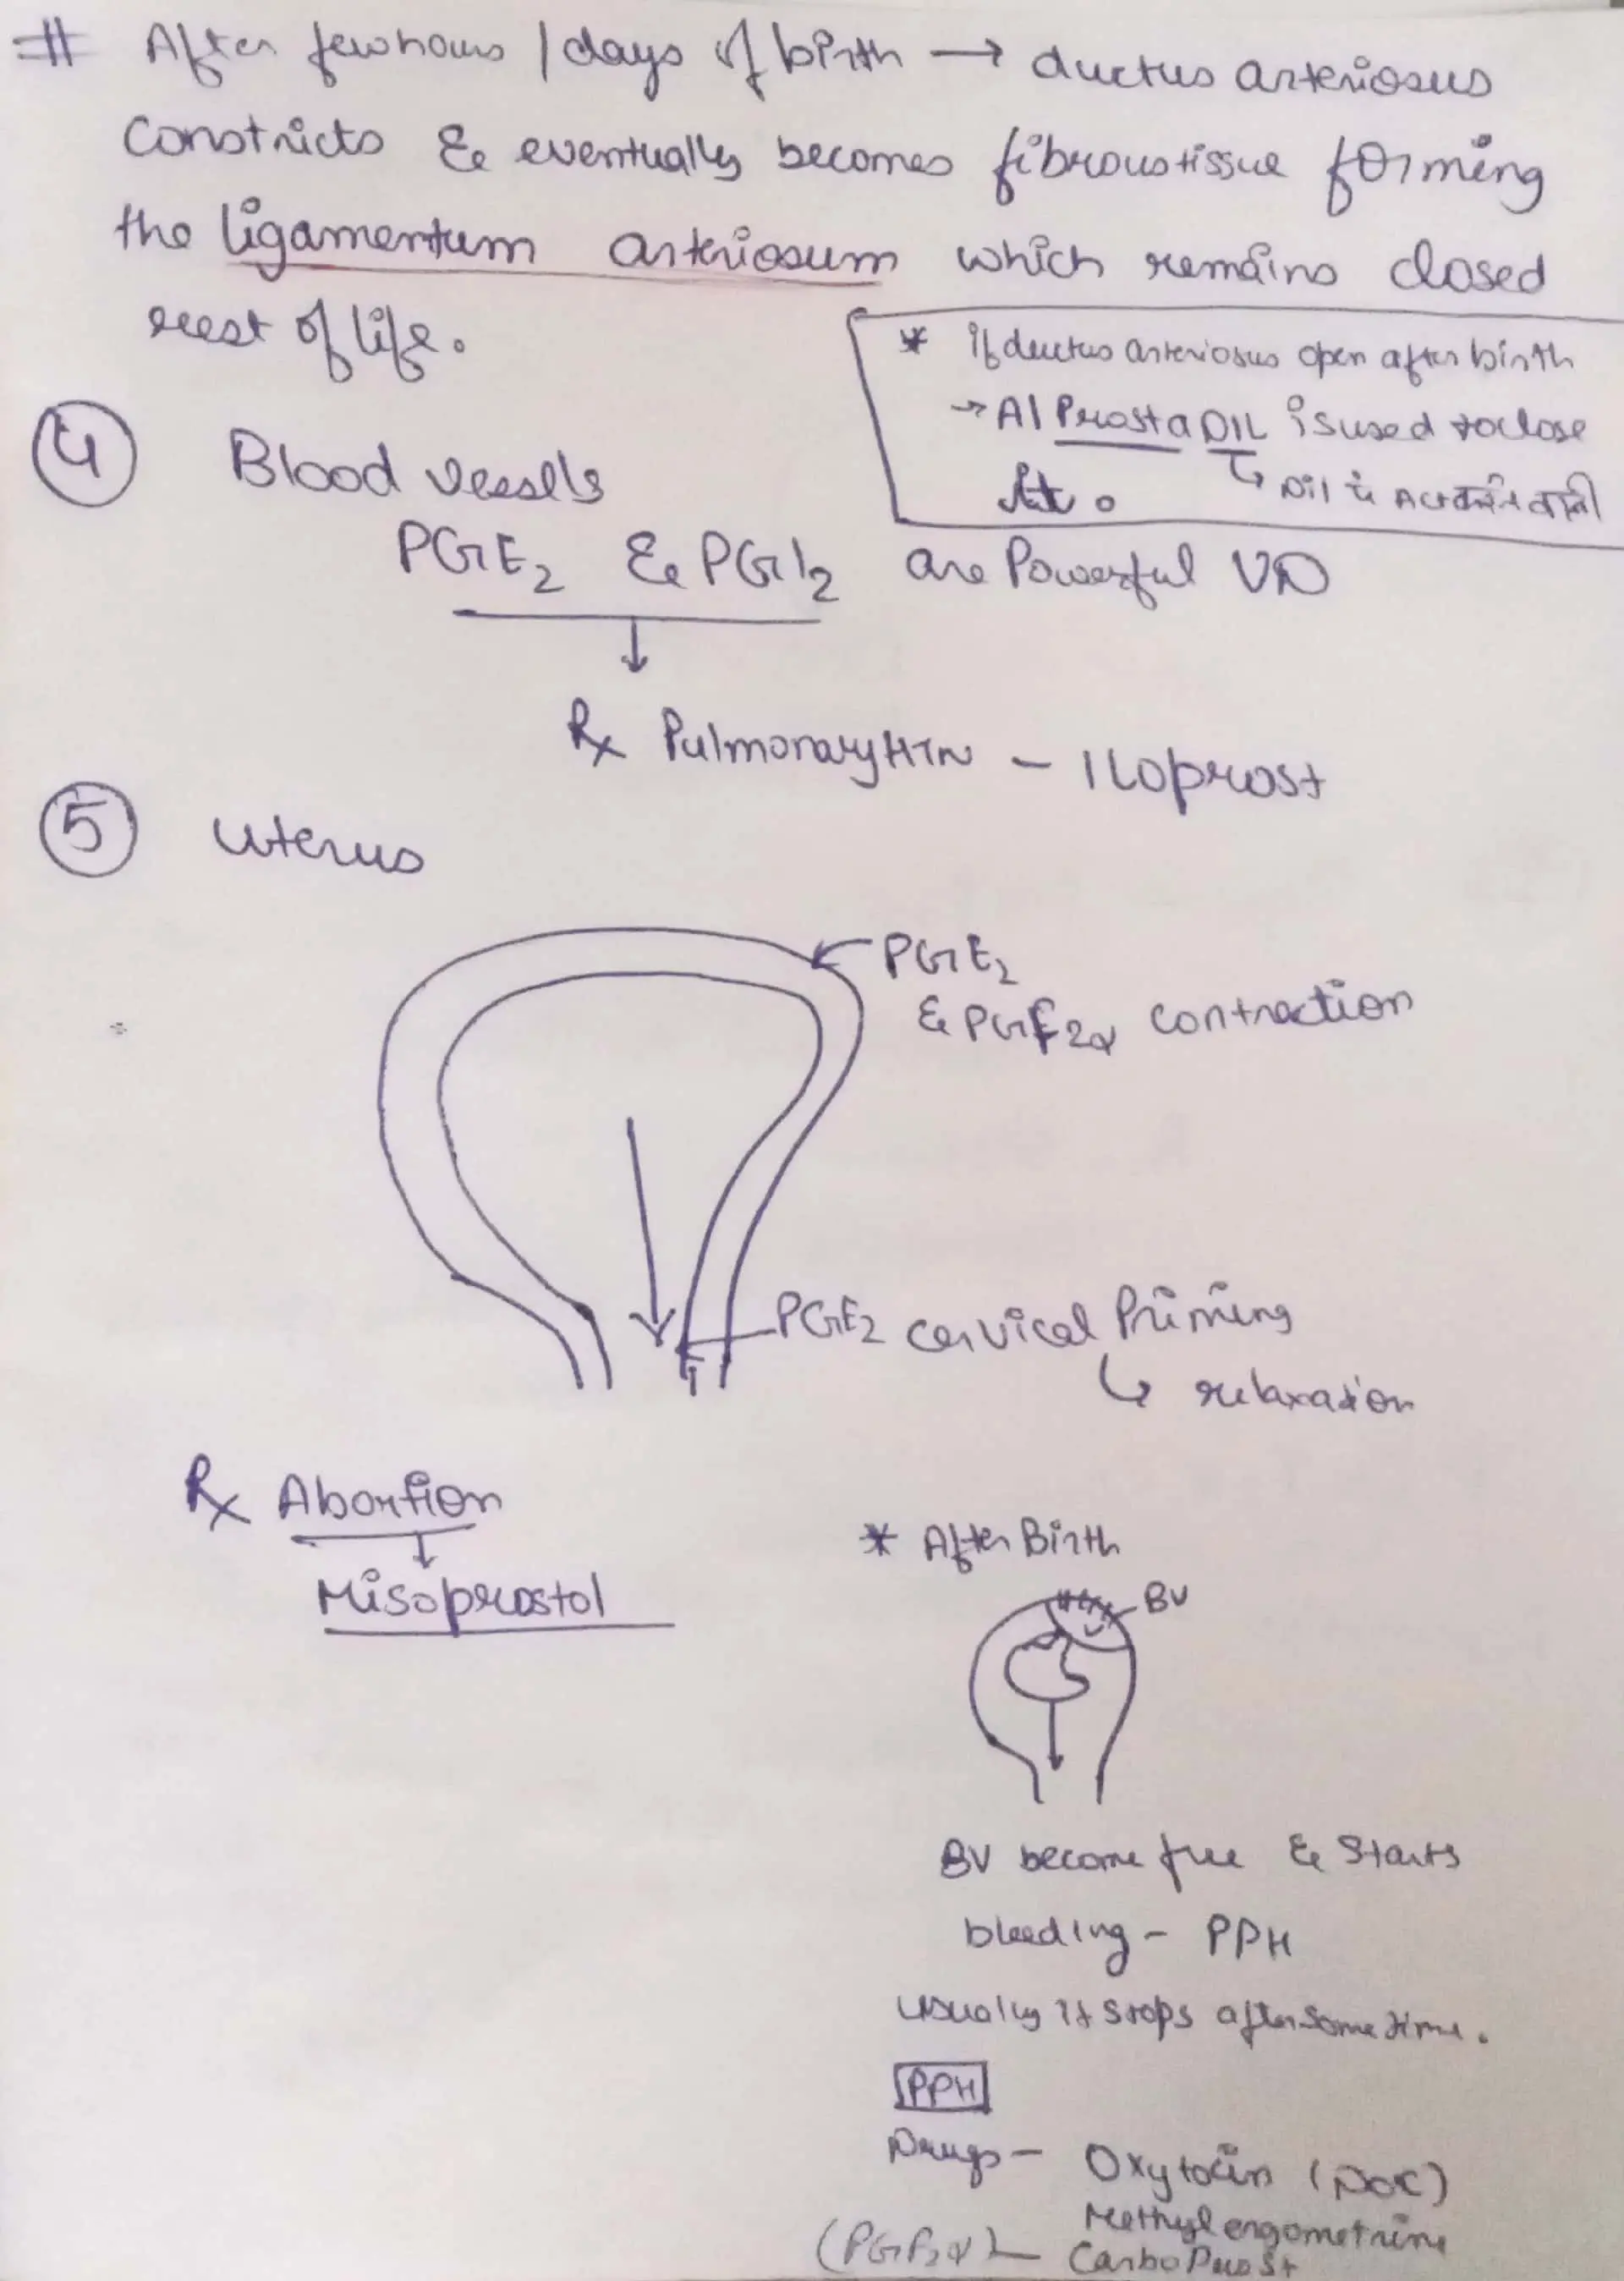 # After few hours / days of birth → ductus arteriosus
constricts & eventually becomes fibrous tissue forming
the ligamentum arteriosum which remains closed
rest of life.
* if ductus arteriosus open after birth
→ Al Prosta DIL is used to close
it.
↳ Dil पे Act करने वाली
4 Blood vessels
PGE2 & PGI2 are Powerful VD
↓
Rx Pulmonary HTN - Iloprost
5 Uterus
PGE2
& PGF2α contraction
PGE2 cervical Priming
↳ relaxation
Rx Abortion
↓
Misoprostol
* After Birth
BV
BV become free & starts
bleeding - PPH
usually it stops after some time.
PPH
Drugs - Oxytocin (DOC)
Methylergometrine
(PGF2α) - CarboProst